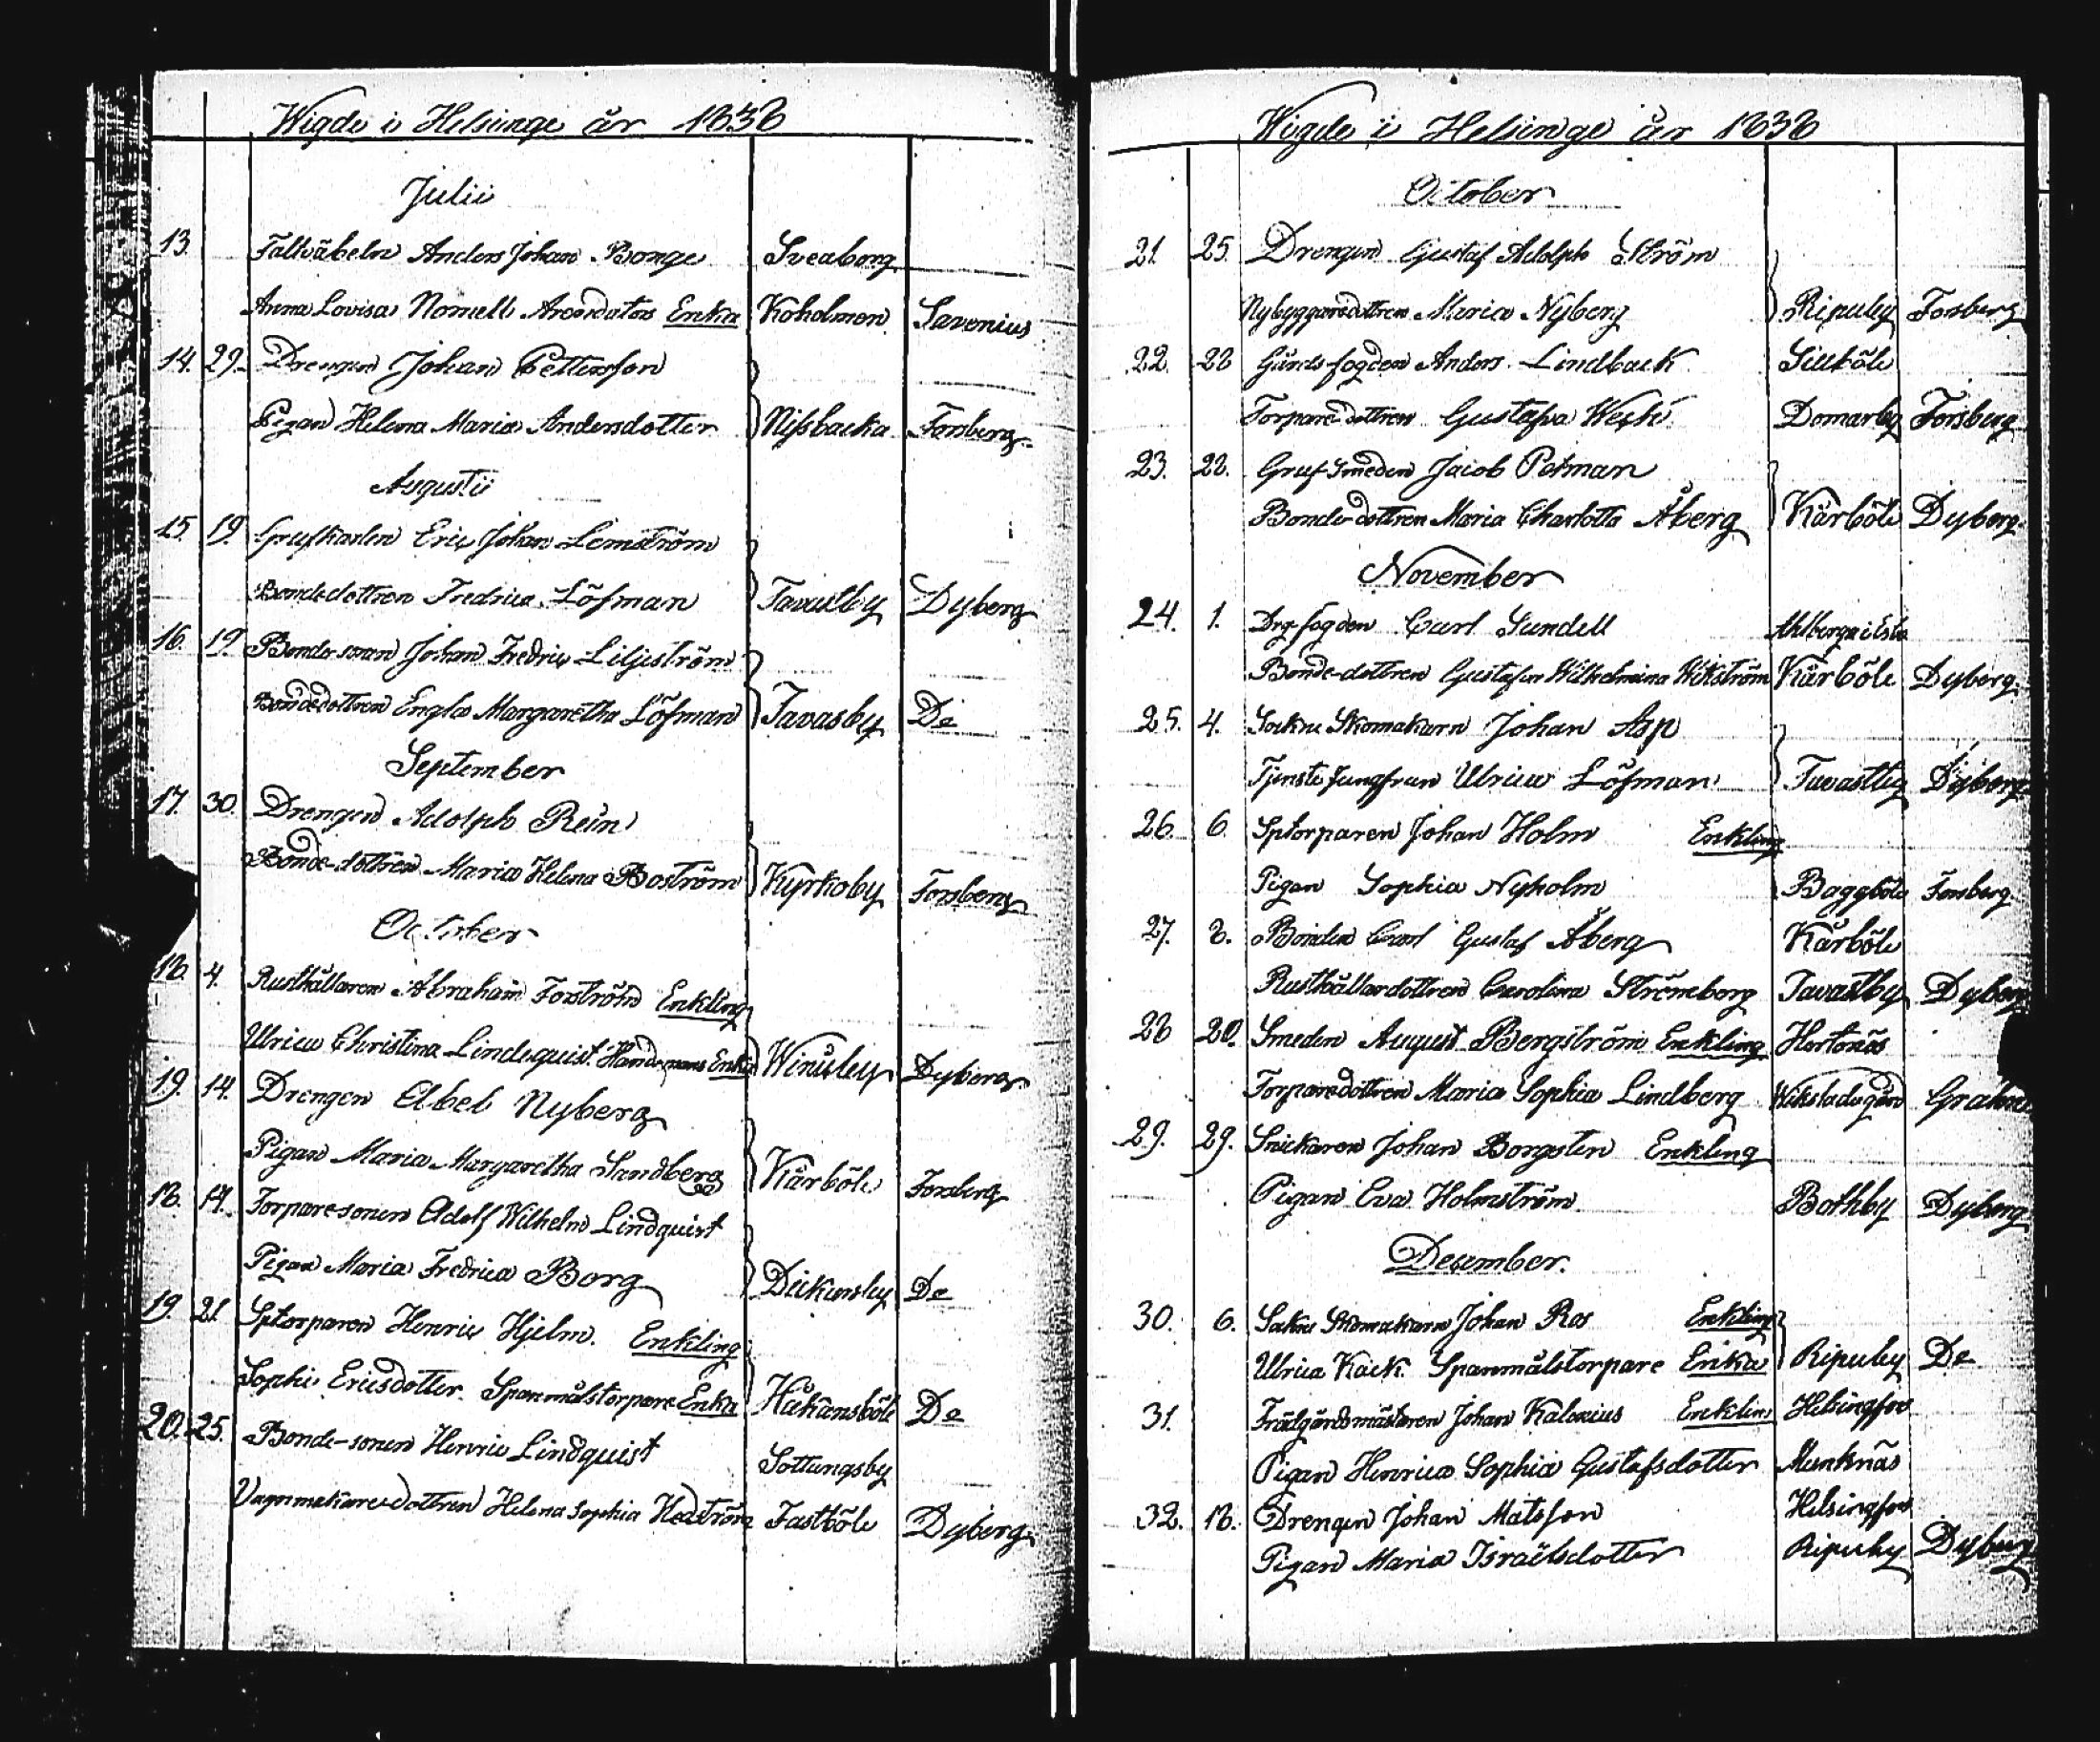 Wigde i Helsinge år 1838
Julii
13. Faltväbeln Anders Johan Bonge Sveaborg
Anna Lovisa Nomell Arendators Enka Koholmen Savenius
14. 29. Drengen Johan Pettersson
Pigan Helena Maria Andersdotter Nissbacka Forsberg
Augustii
15. 19. Grufkarlen Eric Johan Lemström
Bondedottren Fredrica Löfman Tavastby Dyberg
16. 19. Bonde sonen Johan Fredric Liljeström
Bondedottren Engla Margaretha Löfman Tavasby Do
September
17. 30. Drengen Adolph Rein
Bonde-dottren Maria Helena Boström Kyrkoby Forsberg
October
18. 4. Rusthållaren Abraham Forström Enkling
Ulrica Christina Lindequist Enka Dyberg
19. 14. Drengen Abel Nyberg
Pigan Maria Margaretha Sandberg Kårböle Forsberg
18. 14. Torpare-sonen Adolf Wilhelm Lindquist
Pigan Maria Fredrica Borg Dickursby Do
19. 21. Sptorparen Henric Hjelm. Enkling
Sophie Ericsdotter Spanmålstorpare Enka Håkansböle Do
20. 25. Bonde-sonen Henric Lindquist Sottungsby
Vagnmakaredottren Helena Sophia Hedström Fastböle Dyberg
Wigde i Helsinge år 1838
October
21. 25. Drengen Gustaf Adolph Ström
Nybyggaredottren Maria Nyberg Ripuby Forsberg
22. 28 Gårds fogden Anders Lindback Sillböle
Torpare dottren Gustafva Domarby Forsberg
23. 28. Gruf Smeden Jacob Petman
Bonde-dottren Maria Charlotta Åberg Kårböle Dyberg
November
24. 1. fogden Carl Sundell Alberga i Esbo
Bonde-dottren Gustafva Wilhelmina Wikström Kårböle Dyberg
25. 4. Sockne Skomakarn Johan Asp
Tjenste Jungfrun Ulrica Löfman Tavastby Dyberg
26. 6. Sptorparen Johan Holm Enkling
Pigan Sophia Nyholm Baggböle Forsberg
27. 8. Bonden Carl Gustaf Åberg Kårböle
Rusthållardottren Carolina Strömborg Tavastby Dyberg
28 20. Smeden August Bergström Enkling Hertonäs
Torparedottren Maria Sophia Lindberg Grahn
29. 29. Snickaren Johan Borgsten Enkling
Pigan Eva Holmström Bothby Dyberg
December.
30. 6. Sockne Skomakarn Johan Ros Enkling
Ulrica Kack Spanmålstorpare Enka Ripuby Do
31. Trädgårdsmästaren Johan Kalenius Enkling Helsingfors
Pigan Henrica Sophia Gustafsdotter Munknäs
32. 18. Drengen Johan Matsson Helsingfors
Pigan Maria Israëlsdotter Ripuby Dyberg